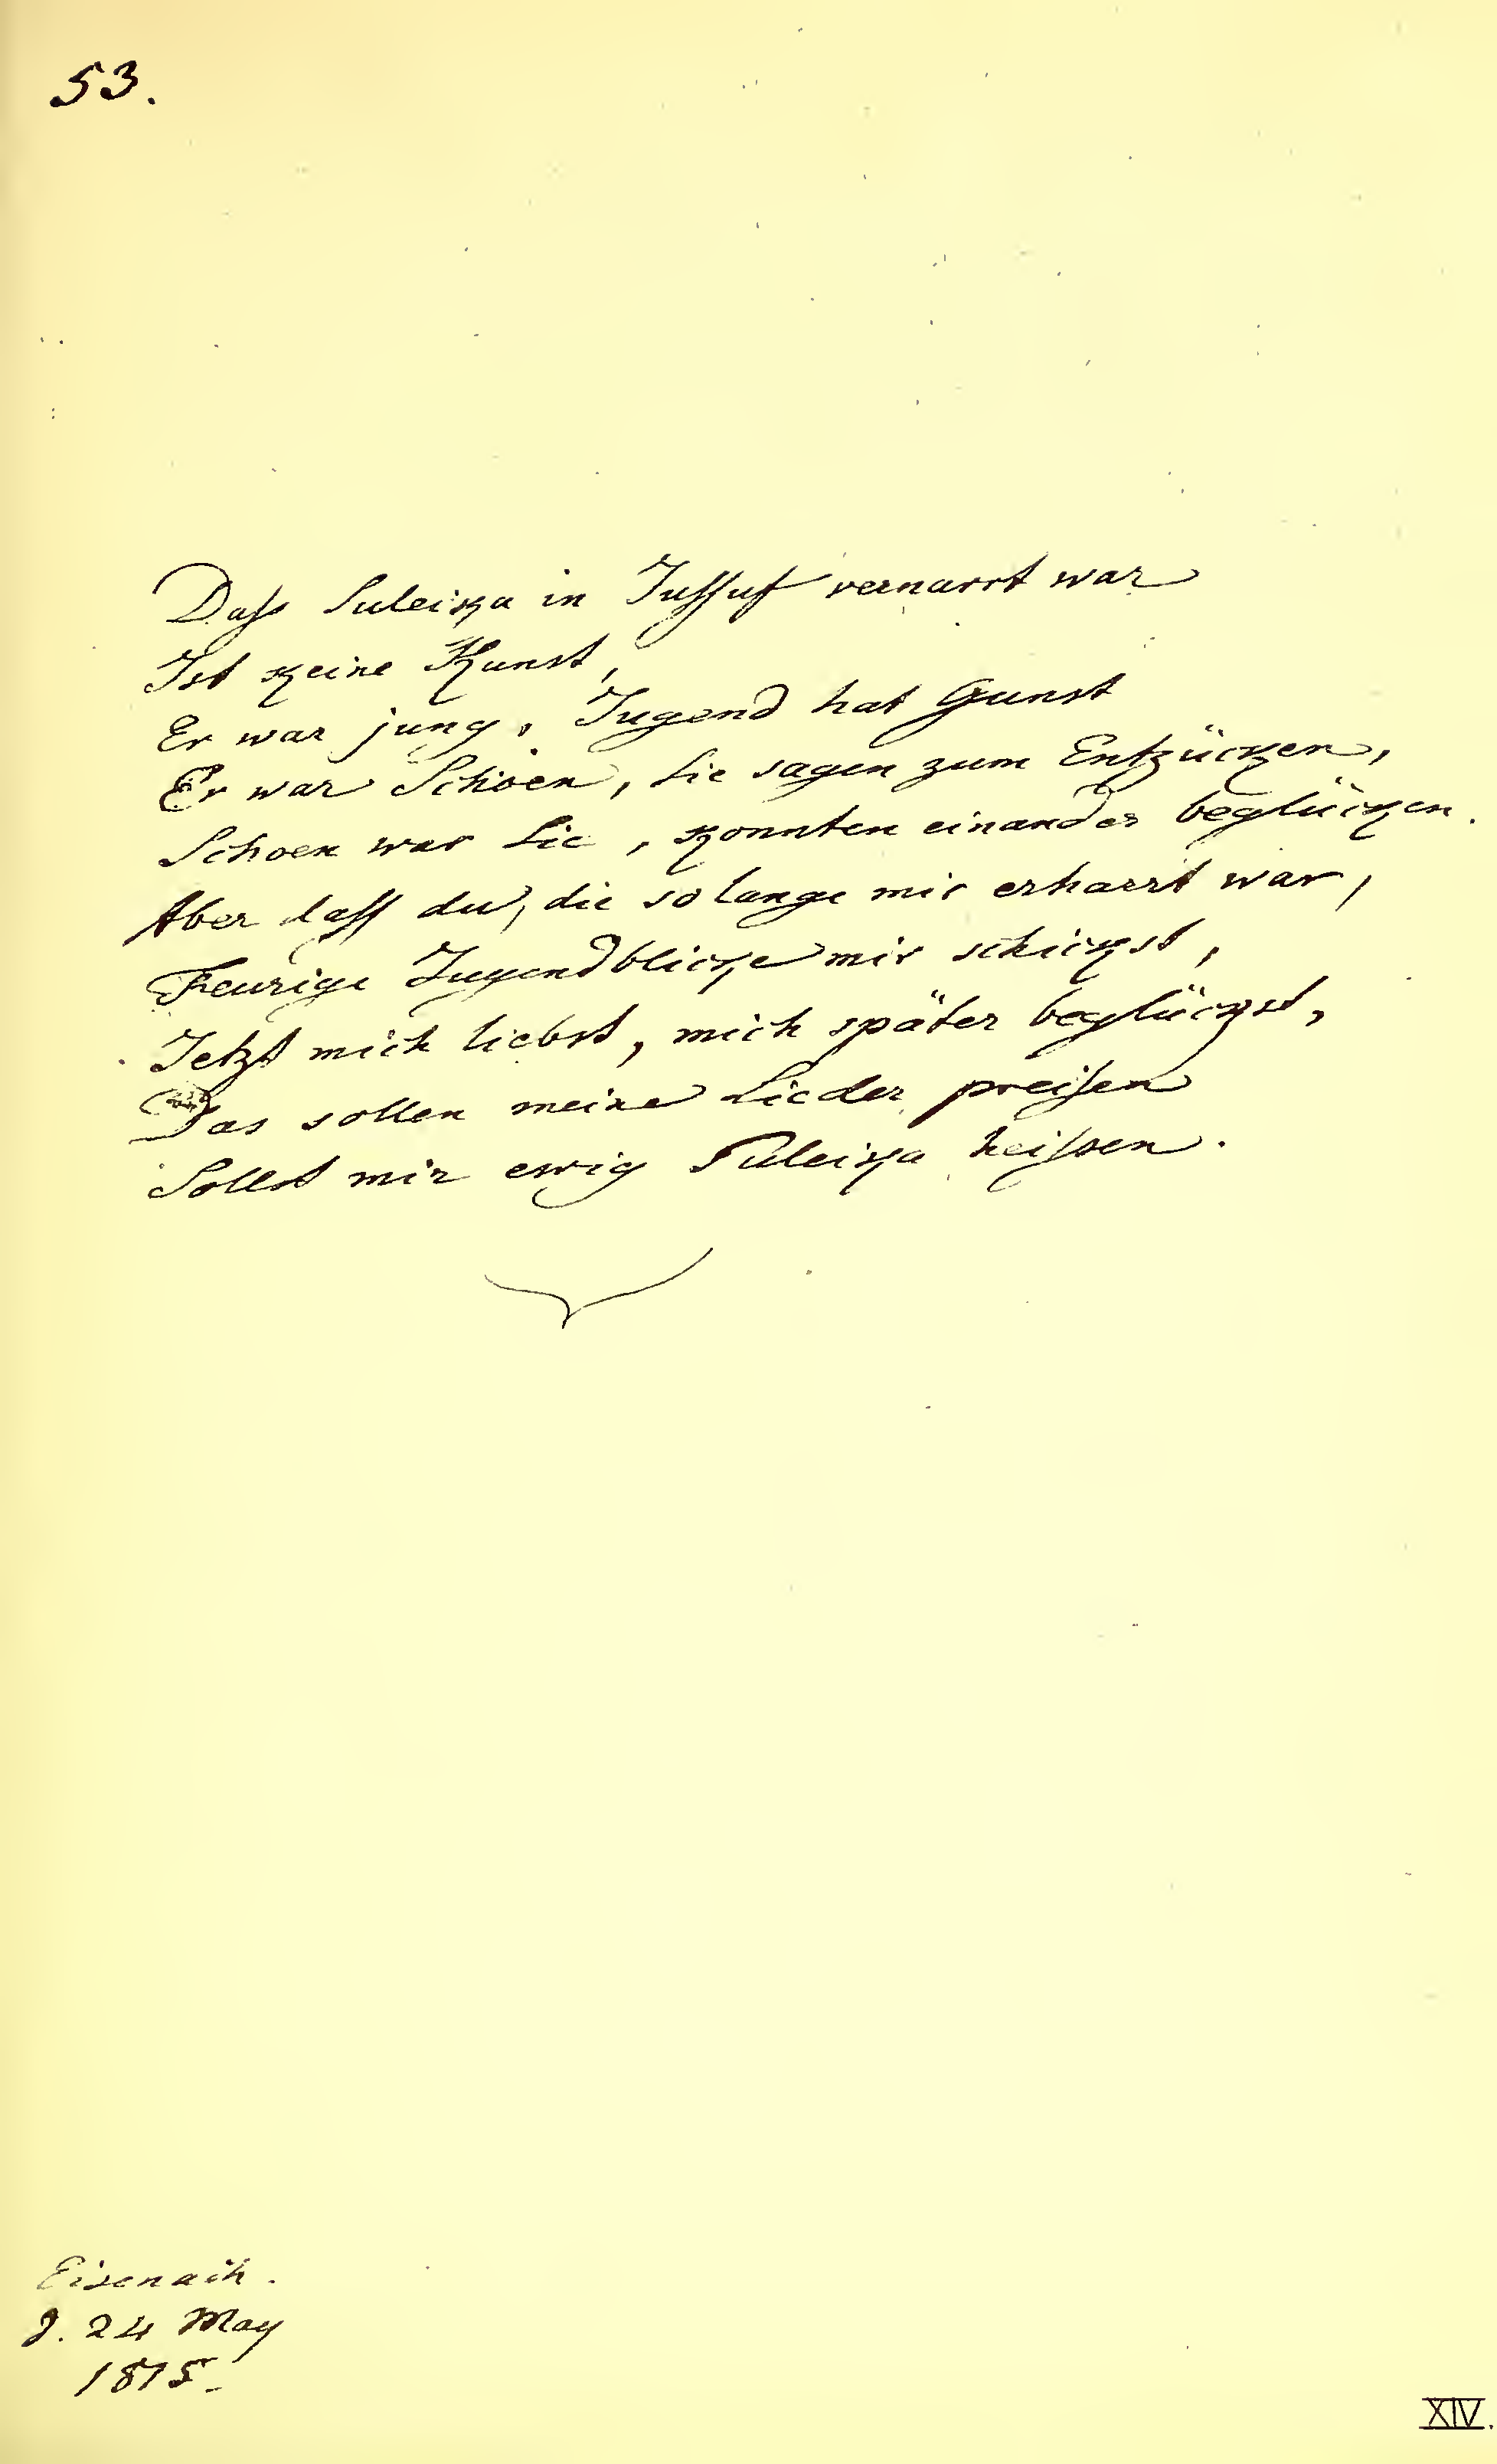 53.
Daſs Suleika in Juſſuf vernarrt war
Ist keine Kunst,
Er war jung, Jugend hat Gunst
Er war Schoen, Sie sagen zum Entzücken,
Schoen war Sie, konnten einander beglücken.
Aber daſſ du, die so lange mir erharrt war,
Feurige Jugendblicke mir schickst,
Jetzt mich liebst, mich später beglückst,
Das sollen meine Lieder preiſen
Sollst mir ewig Suleika heiſsen.
Eisenach.
d. 24 May
1815.
XIV.